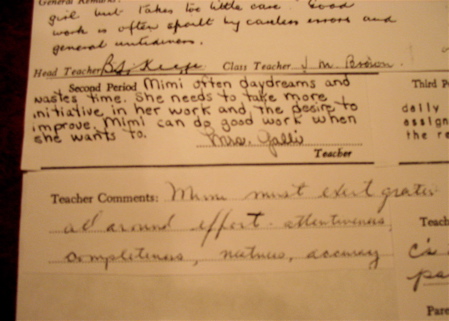 General Remarks:
girl but takes too little care. Good
work is often spoilt by careless errors and
general untidiness.
Head Teacher Class Teacher J. M. Brown.
Second Period Mimi often daydreams and
wastes time. She needs to take more
initiative in her work and the desire to
improve. Mimi can do good work when
she wants to.
Mrs. Galli
Teacher
Third P
daily
assign
the re
Teacher Comments: Mimi must exert greater
all around effort - attentiveness,
completeness, neatness, accuracy
Teach
c's i
pa
Pare